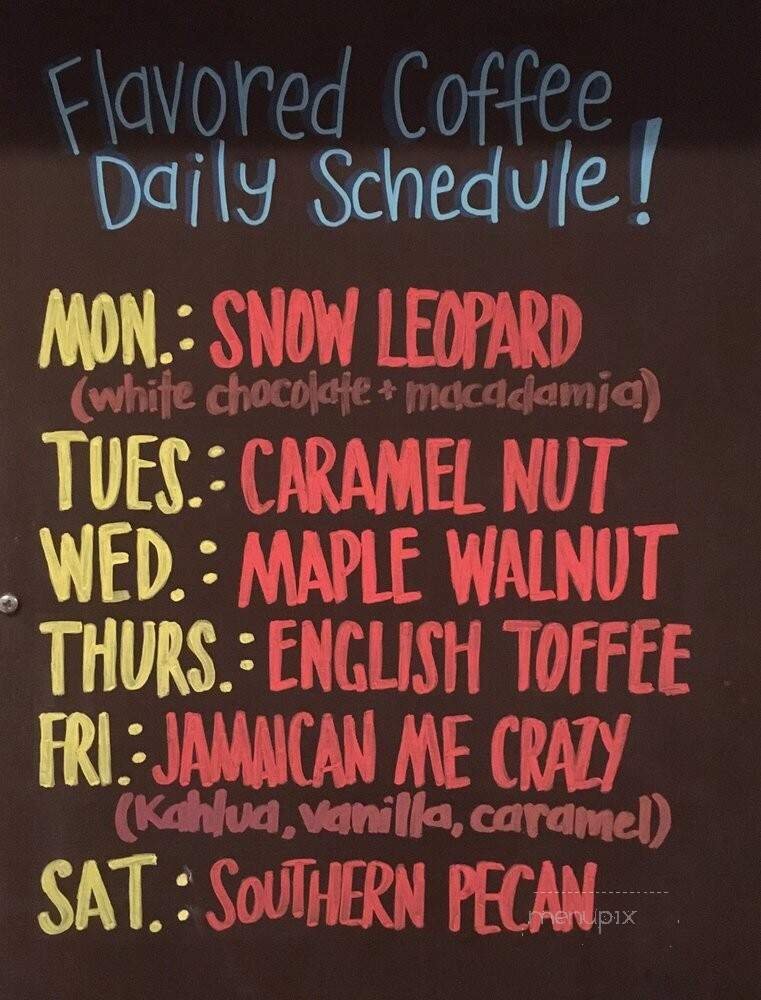 Flavored Coffee
Daily Schedule!
MON.: SNOW LEOPARD
(white chocolate + macadamia)
TUES.: CARAMEL NUT
WED.: MAPLE WALNUT
THURS.: ENGLISH TOFFEE
FRI.: JAMAICAN ME CRAZY
(Kahlua, vanilla, caramel)
SAT.: SOUTHERN PECAN
menupix